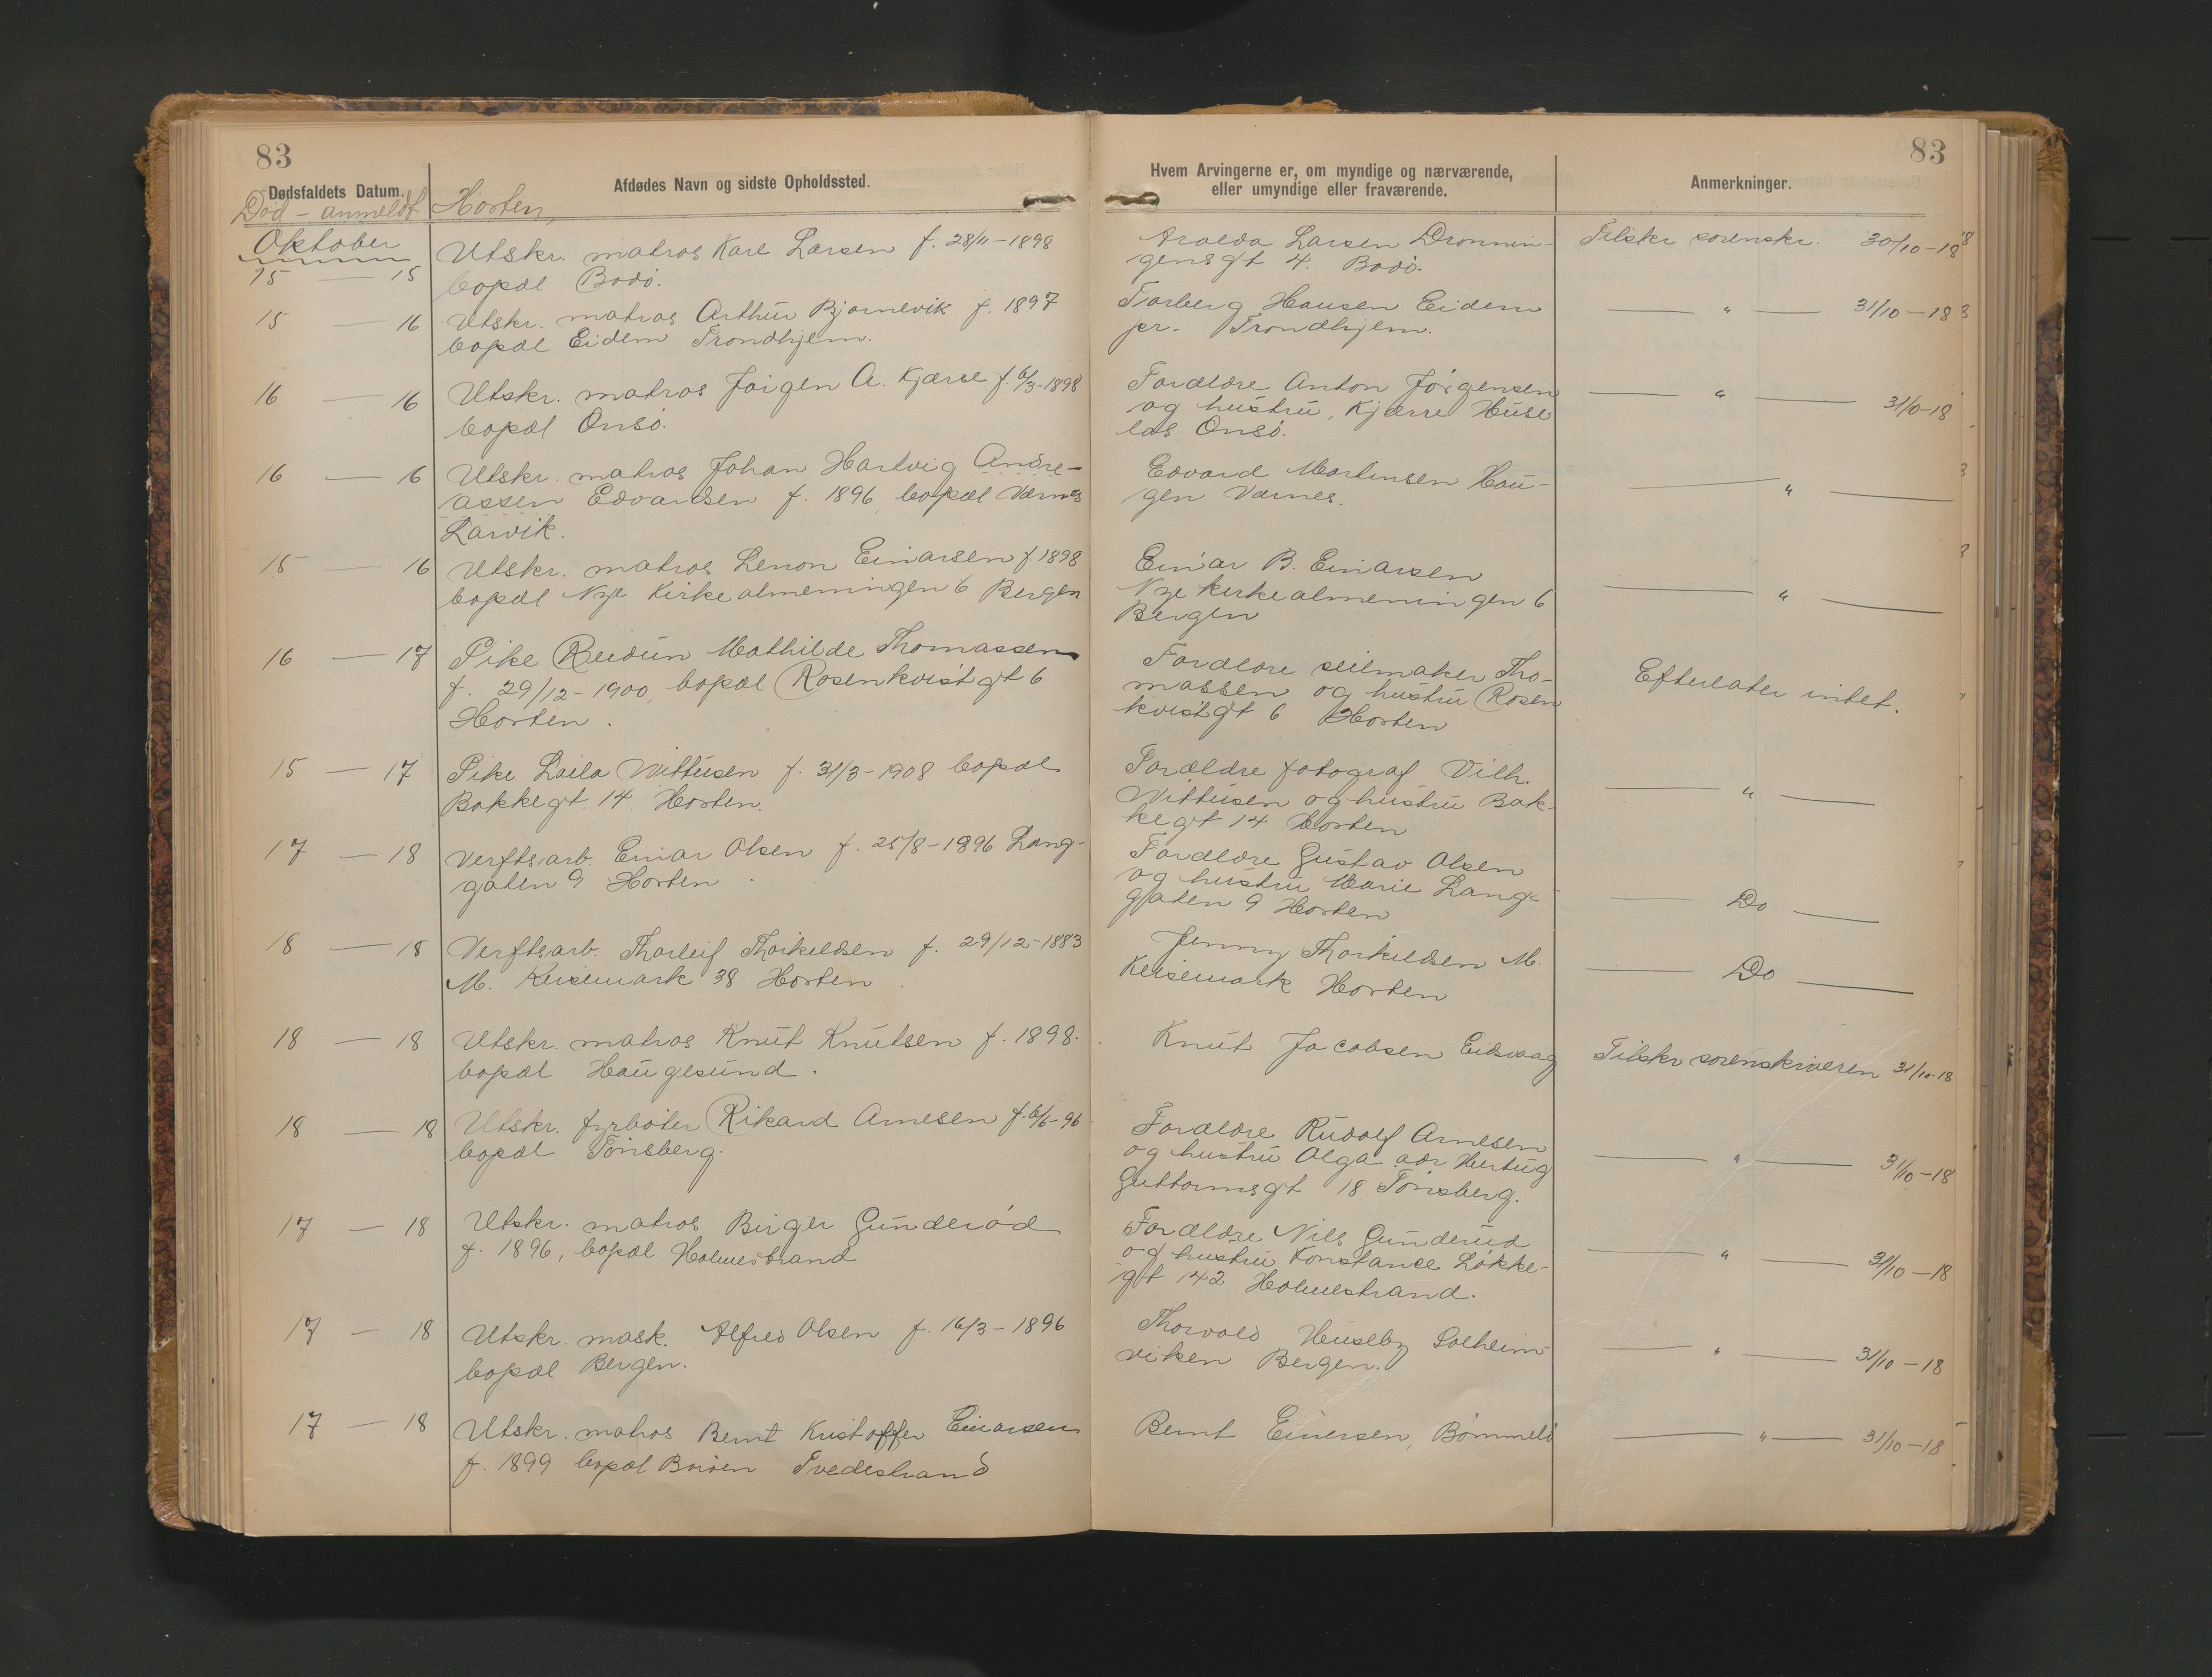 83
83
Dødsfaldets Datum.
Afdødes Navn og sidste Opholdssted.
Hvem Arvingerne er, om myndige og nærværende,
eller umyndige eller fraværende.
Anmerkninger.
Død - anmeldt Horten,
Oktober
15 — 15 Utskr. matros Kare Larsen f. 28/11-1898
bopæl Bodø.
Larsen Dronnin-
gensgt 4. Bodø.
Tilskr sorenskr. 30/10-18
15 — 16 Utskr. matros Arthur Bjørnevik f. 1897
bopæl Eidem Trondhjem.
Torberg Hansen Eidem
pr. Trondhjem.
— " — 31/10-18
16 — 16 Utskr. matros Jørgen A. Kjærre f. 6/3-1898
bopæl Onsø.
Forældre Anton Jørgensen
og hustru, Kjærre Huse
løs Onsø.
— " — 31/10-18
16 — 16 Utskr. matros Johan Hartvig Andre-
assen Edvardsen f. 1896, bopæl Værnes
Larvik.
Edvard Martinsen Hau-
gen Værnes.
— " —
15 — 16 Utskr. matros Lenon Einarsen f. 1898
bopæl Nye Kirkealmeningen 6 Bergen
Einar B. Einarsen
Nye Kirkealmeningen 6
Bergen
— " —
16 — 17 Pike Reidun Mathilde Thomassen
f. 29/12-1900, bopæl Rosenkvistgt 6
Horten.
Forældre seilmaker Tho-
massen og hustru Rosen
kvistgt 6 Horten
Efterlater intet.
15 — 17 Pike Laila Wittusen f. 31/3-1908 bopæl
Bakkegt. 14. Horten.
Forældre fotograf Vilh.
Wittusen og hustru Bak-
kegt 14 Horten
— " —
17 — 18 Verftsarb. Einar Olsen f. 25/8-1896 Lang-
gaten 9 Horten.
Forældre Gustav Olsen
og hustru Marie Lang-
gaten 9 Horten
— Do —
18 — 18 Verftsarb. Thorleif Thorkildsen f. 29/12-1883
M. Keisemark 38 Horten.
Jenny Thorkildsen M.
Keisemark Horten
— Do —
18 — 18 Utskr. matros Knut Knutsen f. 1898.
bopæl Haugesund.
Knut Jacobsen Eidsvaag
Tilskr sorenskriveren 31/10-18
18 — 18 Utskr. fyrbøter Rikard Arnesen f. 6/6-96
bopæl Tønsberg.
Forældre Rudolf Arnesen
og hustru Olga adr Hertug
Guttormsgt 18 Tønsberg.
— " — 31/10-18
17 — 18 Utskr. matros Birger Gunderød
f. 1896, bopæl Holmestrand
Forældre Nils Gunderud
og hustru Konstance Løkke-
gt 142 Holmestrand.
— " — 31/10-18
17 — 18 Utskr. mask. Alfred Olsen f. 16/3-1896
bopæl Bergen.
Thorvald Huseby Solheim-
viken Bergen.
— " — 31/10-18
17 — 18 Utskr. matros Bernt Kristoffer Einarsen
f. 1899 bopæl Borøen Tvedestrand
Bernt Einersen, Bømmelø
— " — 31/10-18